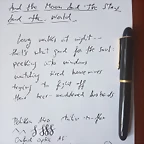 And the Moon and the Stars
and the World
Long walks at night--
that's what good for the soul:
peeking into windows
watching tired housewives
trying to fight off
their beer-maddened husbands